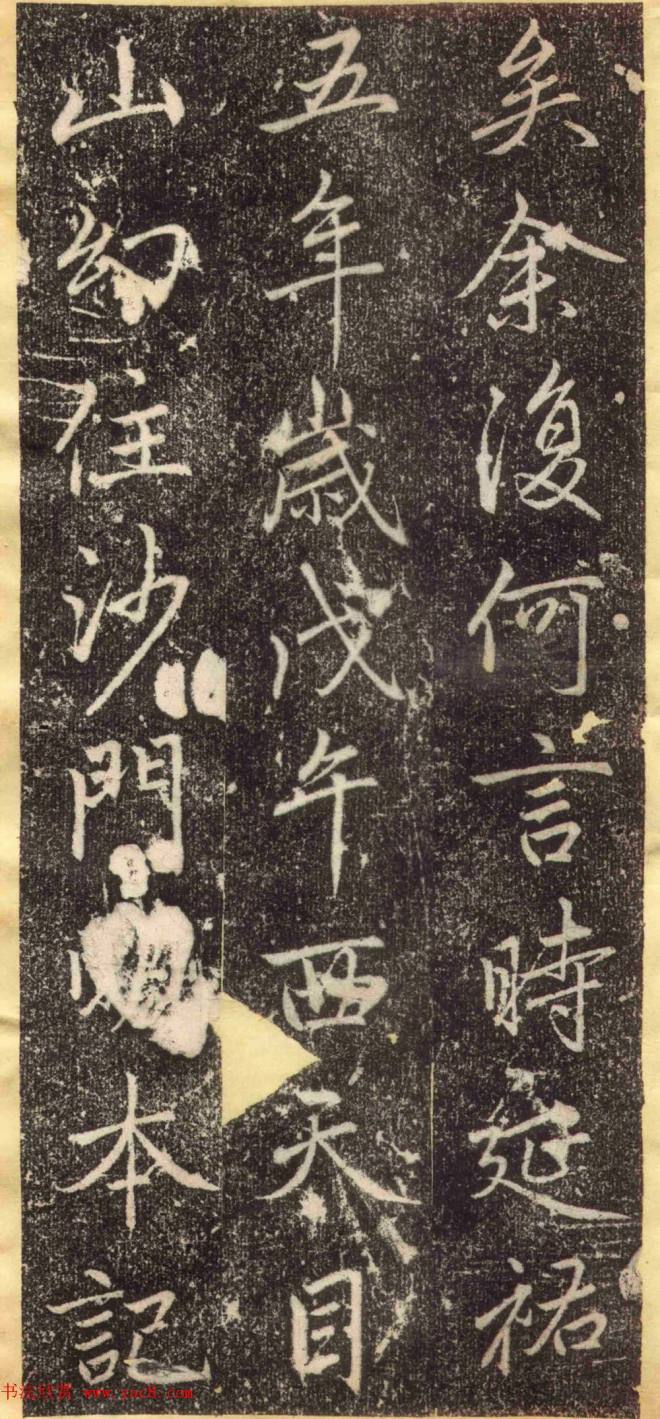 矣余復何言時延祐
五年歲戊午西天目
山幻住沙門本記
书法欣赏 www.yac8.com